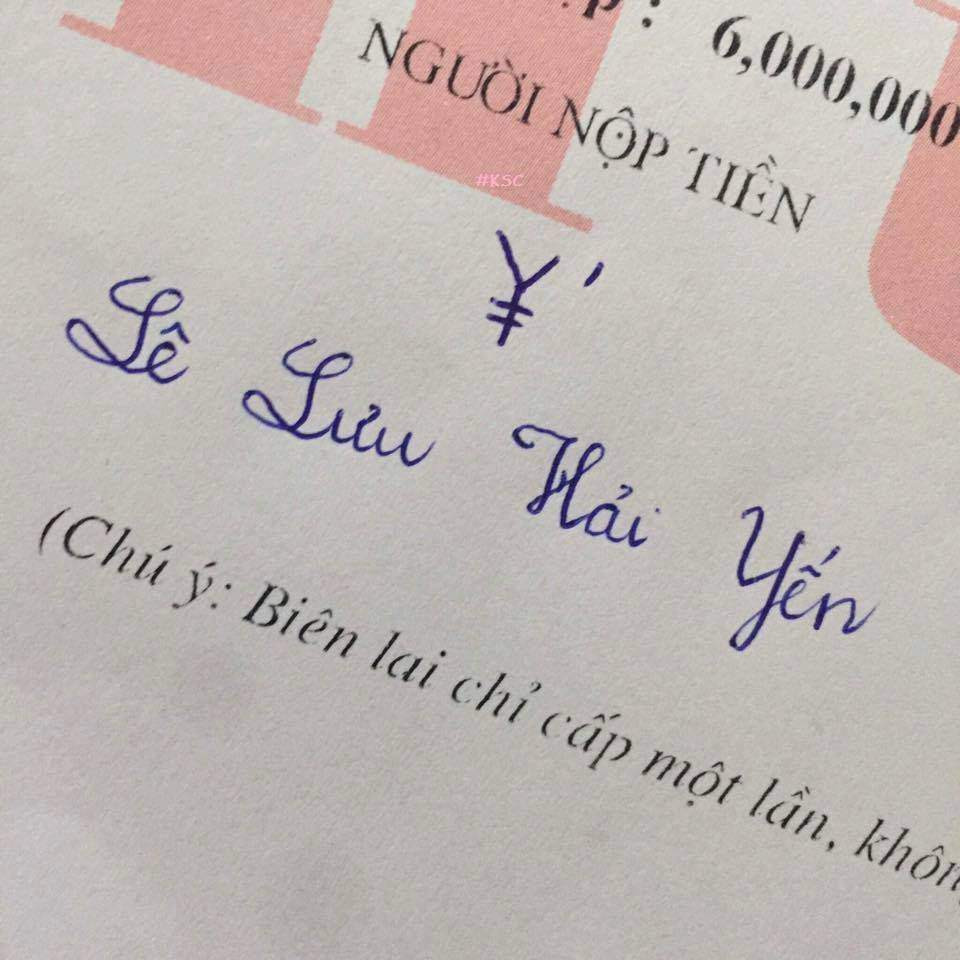 6,000,000
NGƯỜI NỘP TIỀN
#KSC
¥'
Lê Lưu Hải Yến
(Chú ý: Biên lai chỉ cấp một lần, không